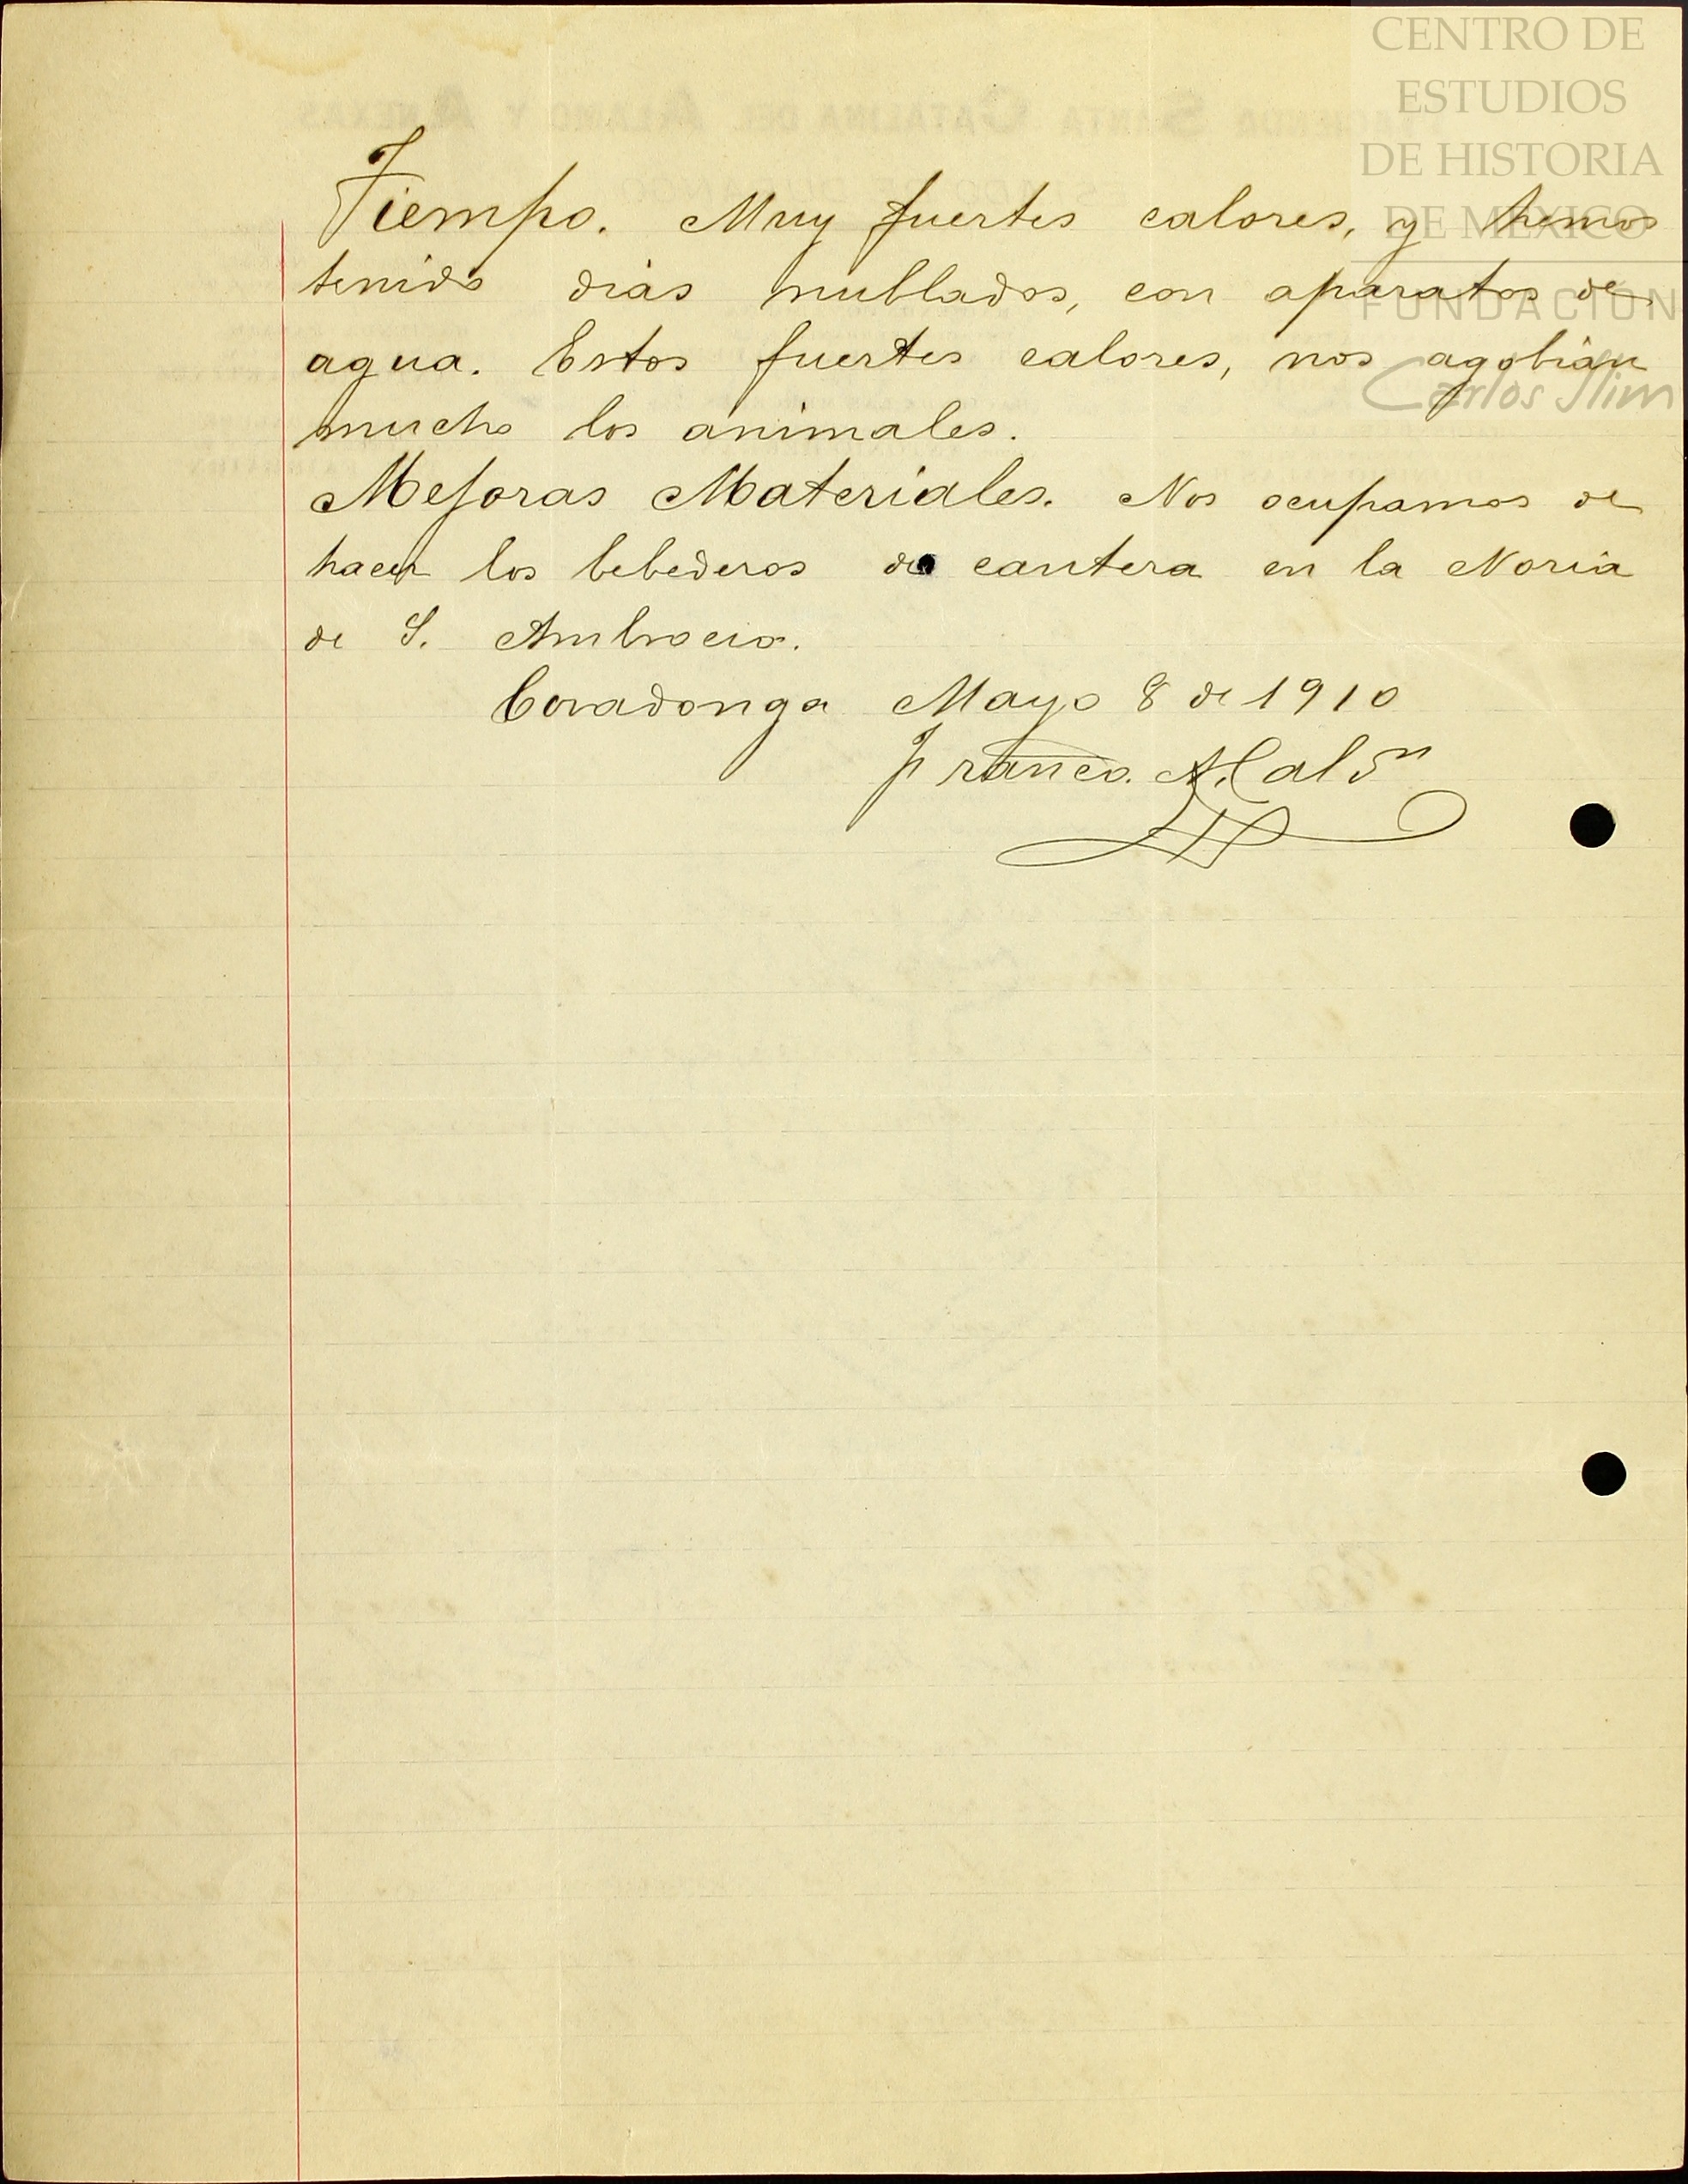 CENTRO DE
ESTUDIOS
DE HISTORIA
DE MÉXICO
FUNDACIÓN
Carlos Slim
Tiempo. Muy fuertes calores, y hemos
tenido dias nublados, con aparatos de
agua. Estos fuertes calores, nos agobian
mucho los animales.
Mejoras Materiales. Nos ocupamos de
hacer los bebederos de cantera en la Noria
de S. Ambrocio.
Covadonga Mayo 8 de 1910
Franco.